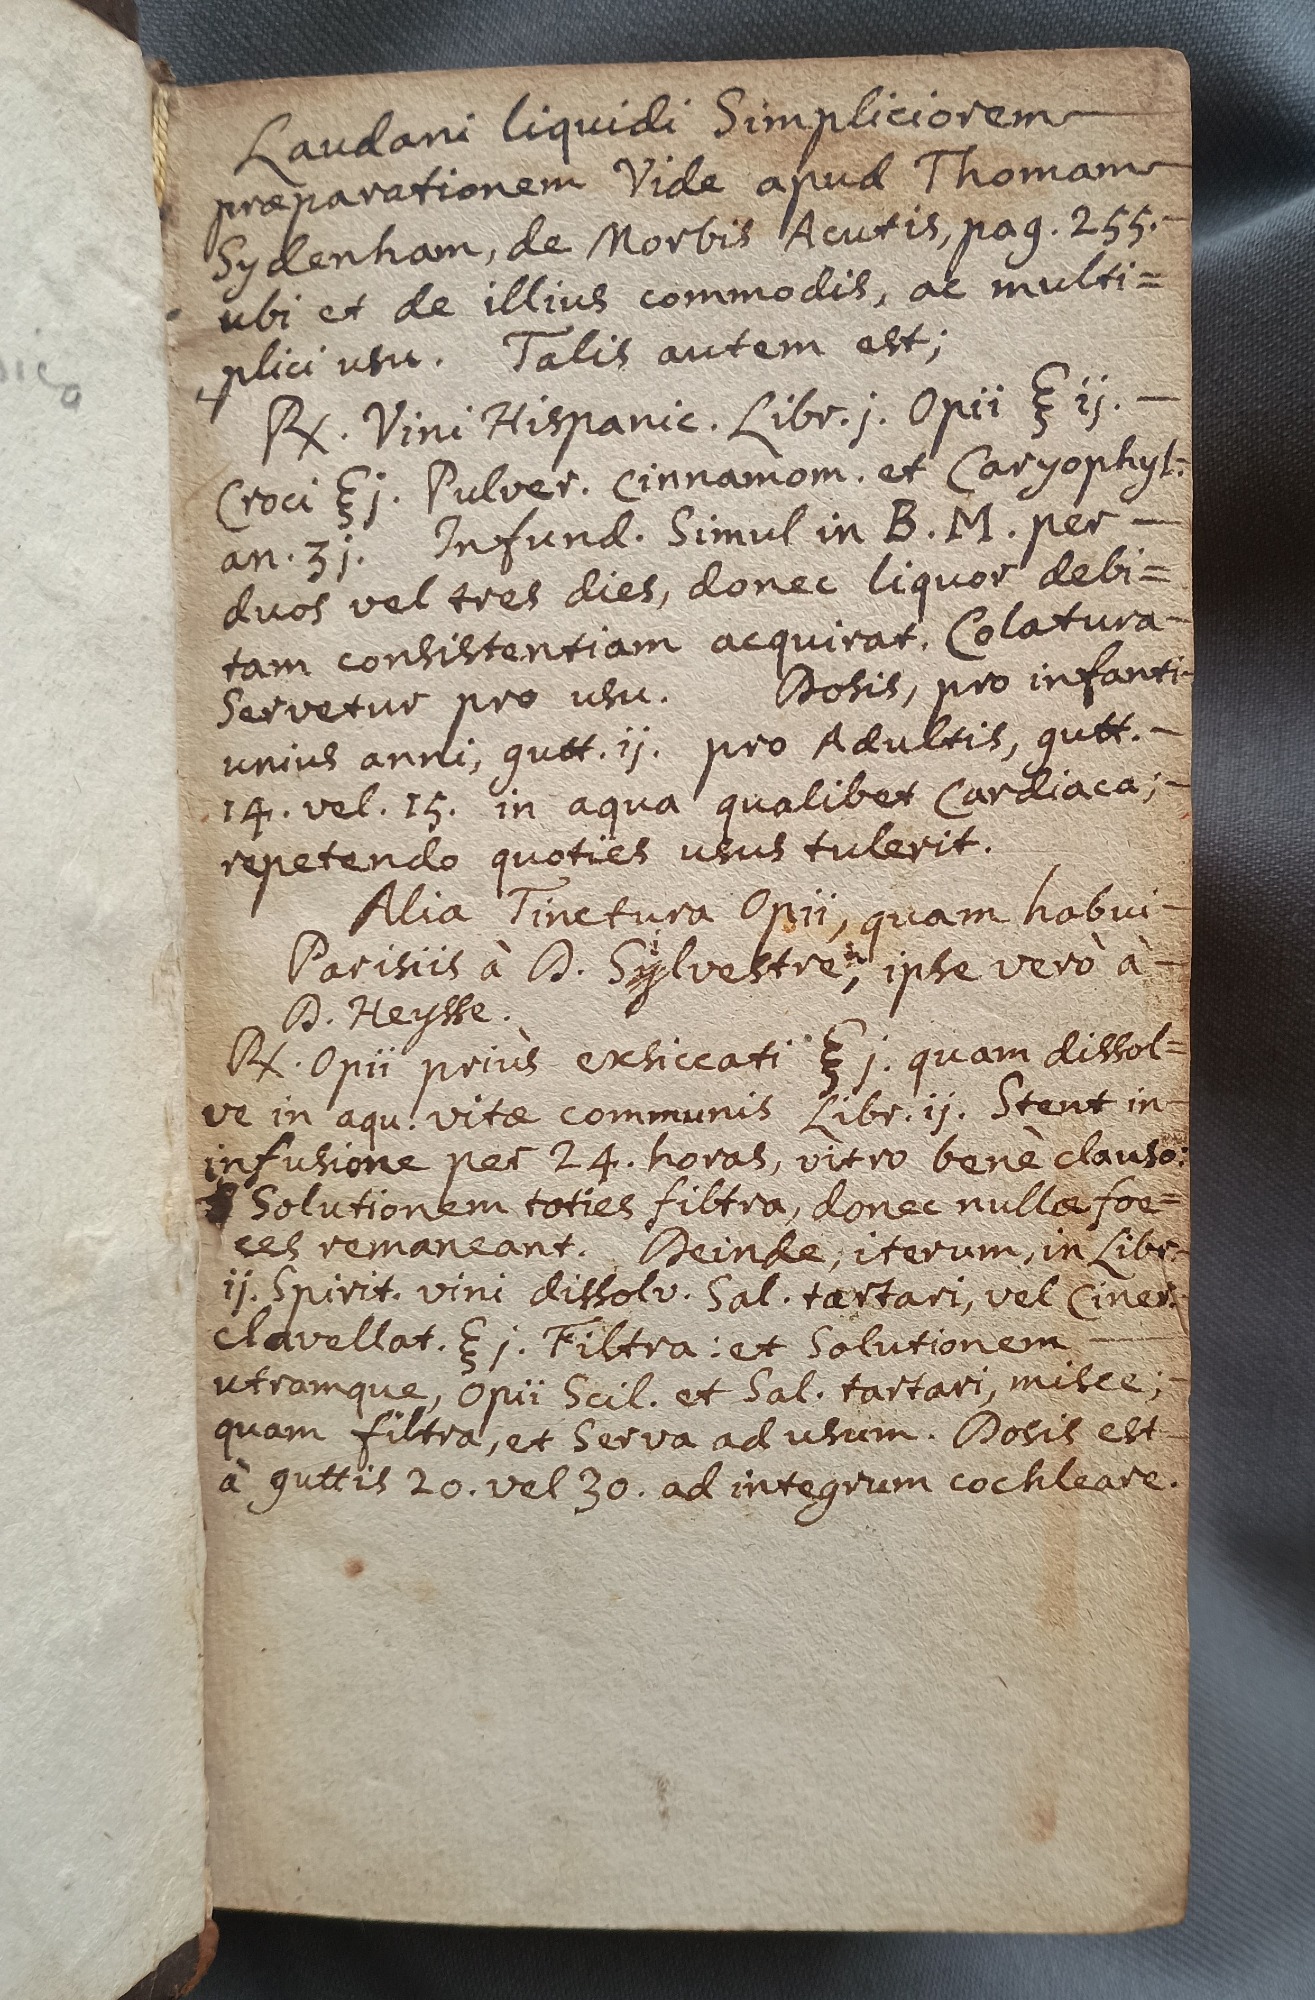 Laudani liquidi Simpliciorem
præparationem Vide apud Thomam
Sydenham, de Morbis Acutis, pag. 255.
ubi et de illius commodis, ac multi=
plici usu. Talis autem est;
℞. Vini Hispanic. Libr. j. Opii ℥ ij.
Croci ℥ j. Pulver. Cinnamom. et Caryophyl:
an. ʒ j. Infund. Simul in B. M. per
duos vel tres dies, donec liquor debi=
tam consistentiam acquirat. Colatura
Servetur pro usu. Dosis, pro infanti
unius anni, gutt. ij. pro Adultis, gutt.
14. vel. 15. in aqua qualibet Cardiaca;
repetendo quoties usus tulerit.
Alia Tinctura Opii, quam habui
Parisiis à D. Sylvestre, ipse verò à
D. Heysse.
℞. Opii priùs exsiccati ℥ j. quam dissol=
ve in aqu. vitæ communis Libr. ij. Stent in
infusione per 24. horas, vitro benè clauso:
Solutionem toties filtra, donec nullæ foe=
ces remaneant. Deinde, iterum, in Libr.
ij. Spirit. vini dissolv. Sal. tartari, vel Ciner.
clavellat. ℥ j. Filtra: et Solutionem
utramque, Opii Scil. et Sal. tartari, misce;
quam filtra, et Serva ad usum. Dosis est
à guttis 20. vel 30. ad integrum cochleare.